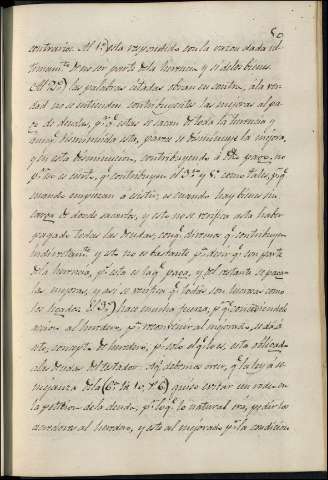 50
contrario. Al 1º) esta respondido con la razon dada ul-
timamte de no ser parte de la herencia y si de los bienes.
Al 2º) las palabras citadas obran en contra, á la ver-
dad no se entienden contribuyentes las mejoras al pa-
go de deudas, pr q. estas se sacan de toda la herencia y
aunq. disminuida esta, parece se disminuye la mejora,
y en esta disminucion, contribuyendo á pagar, no
pr eso es cierto q. contribuyen el 3º y 5º como tales, pr q.
cuando empiezan á ecsistir, es cuando hay bienes
de donde sacarlos, y esto no se verifica asta haber
pagado todas las deudas, conq. diremos q. contribuyen
indirectamte y esto no es bastante pa decir q. son parte
de la herencia, pr esta es la q. paga, y del restante se paga
las mejoras, y asi se verifica q. todos son
los Al 3º) hace mucha fuerza, pr q. concediendole
accion al heredero, pa reconvenir al mejorado, se dá á
este, concepto de heredero, pr solo el q. lo es, esta obligado
á las deudas del testador. Aqi debemos creer, q. la ley á se-
mejanza de la (6ª tit 10, P. 6) quiso evitar un rodeo en
la peticion de la deuda, pr q. lo natural era, pedir los
acredores al heredero, y este al mejorado pr la condicion